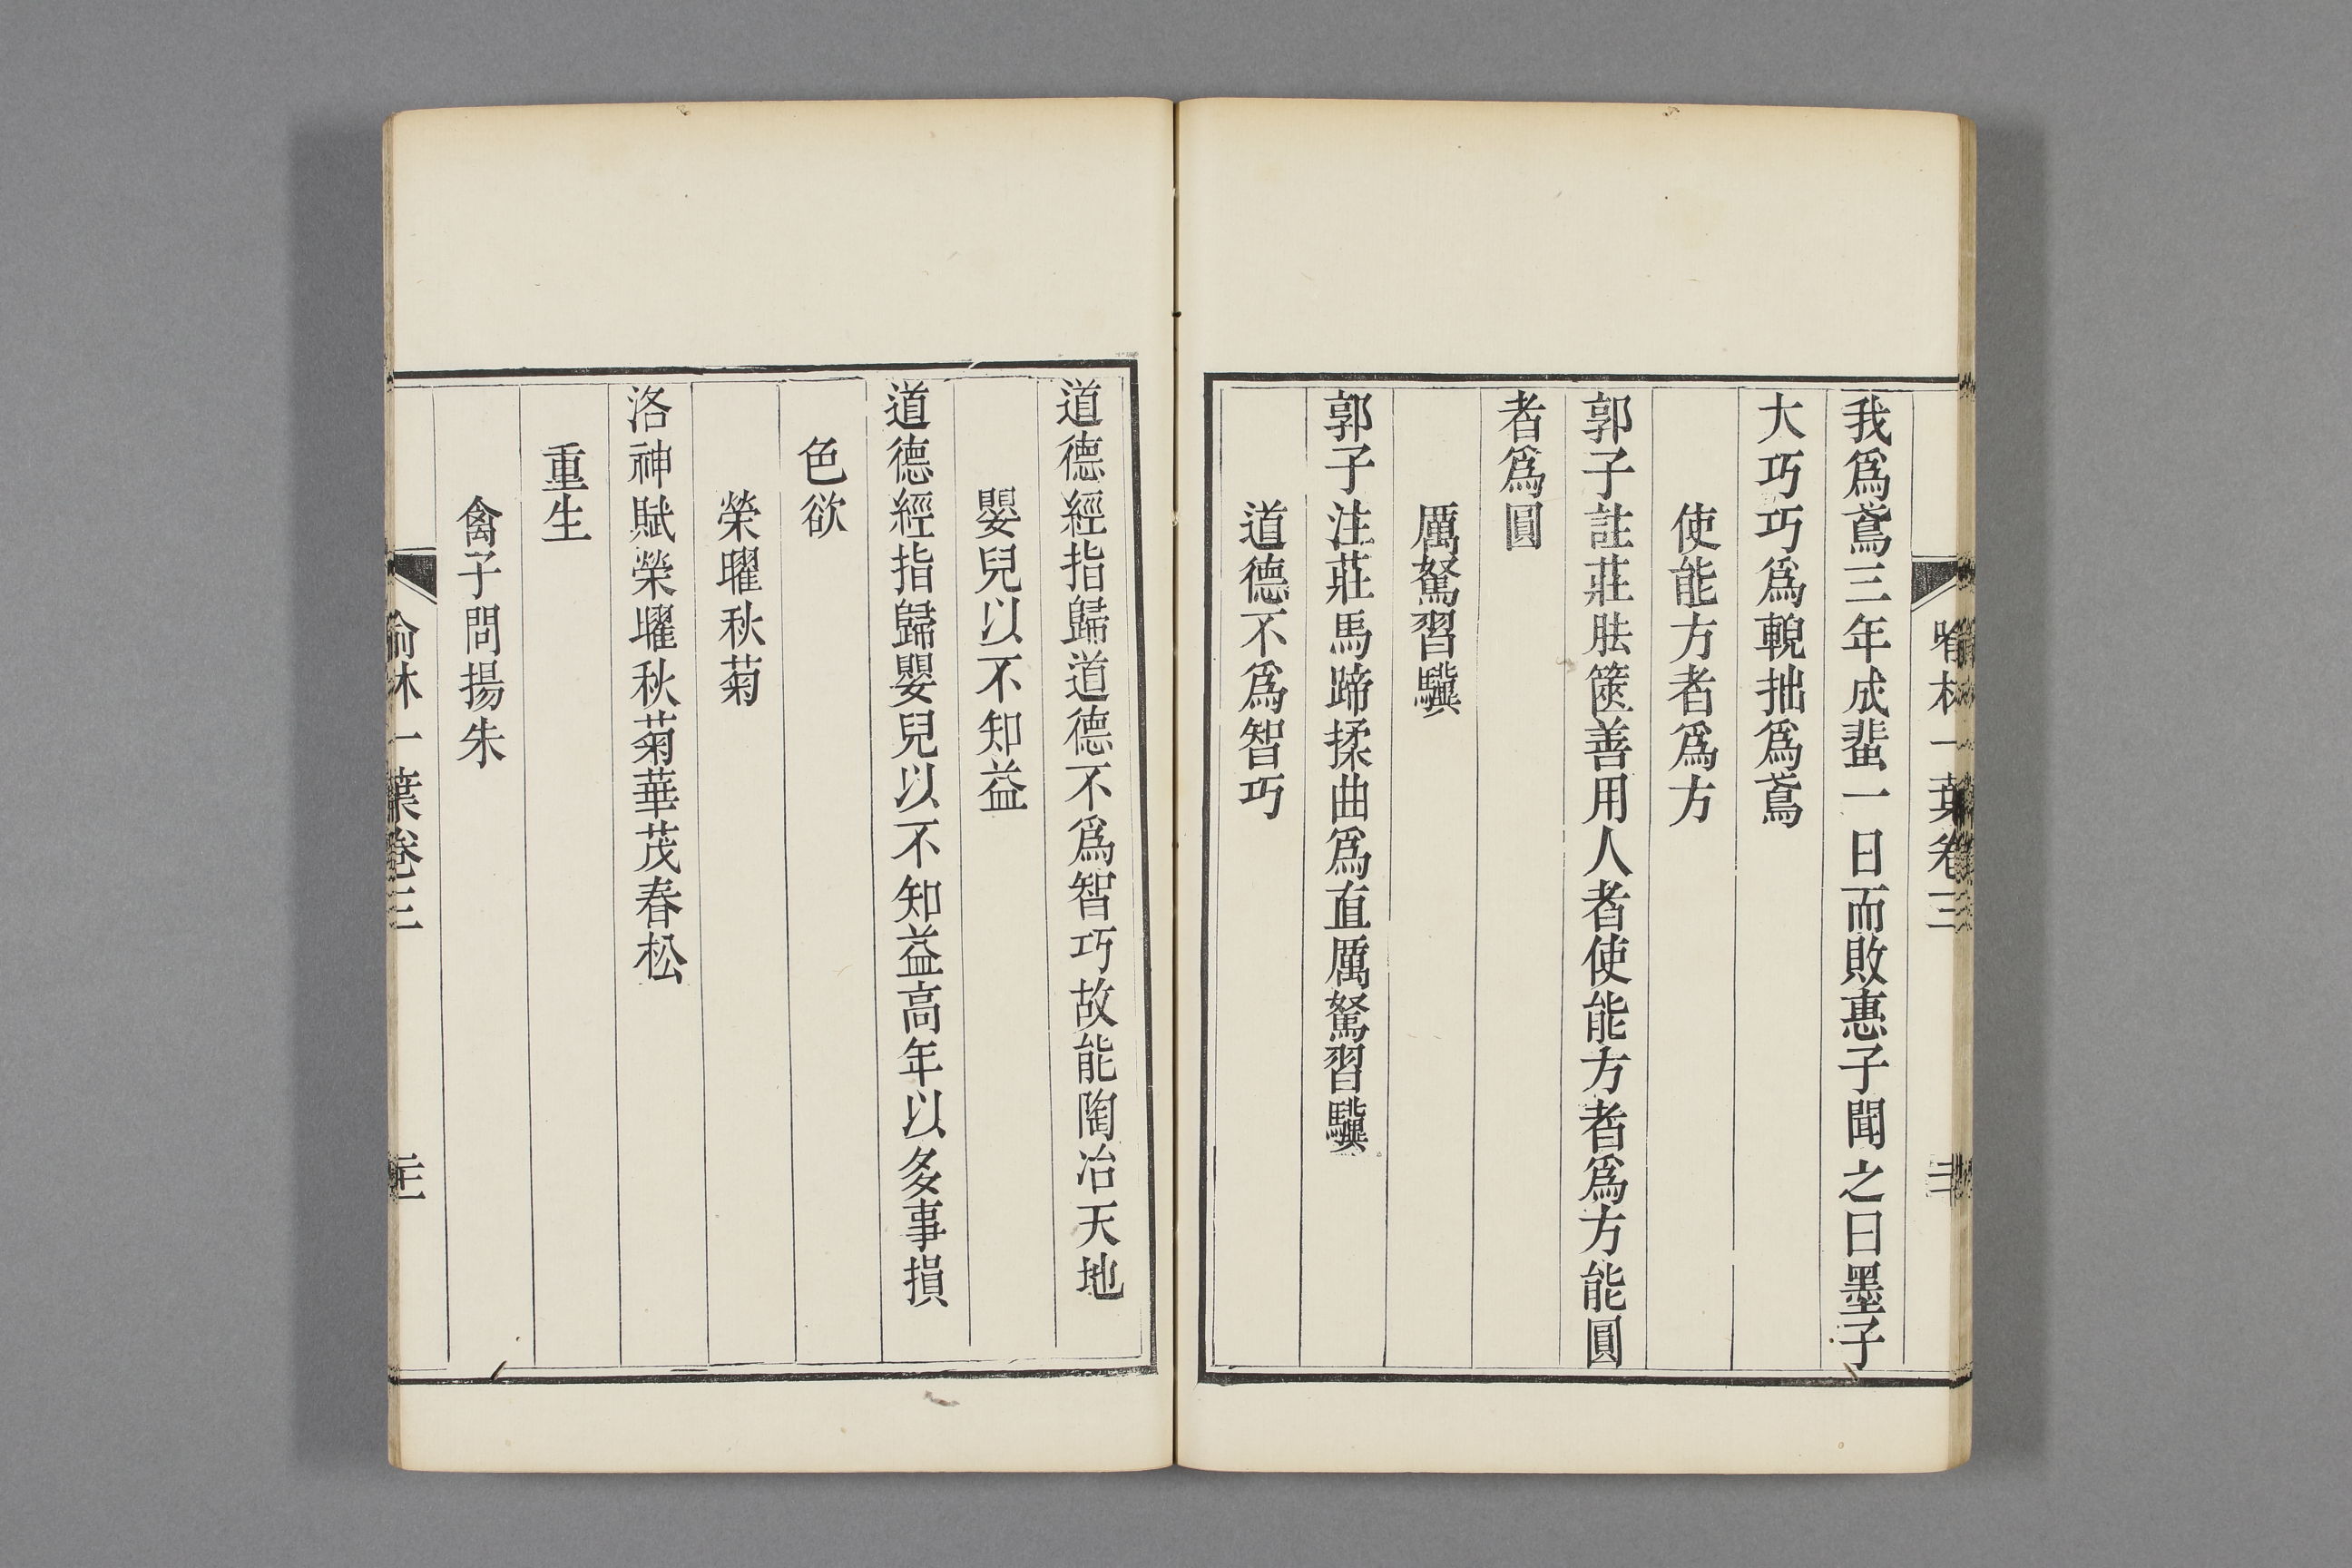 我爲鳶三年成蜚一日而敗惠子聞之曰墨子
大巧巧爲輗拙爲鳶
使能方者爲方
郭子註莊胠篋善用人者使能方者爲方能圓
者爲圓
厲駑習驥
郭子注莊馬蹄揉曲爲直厲駑習驥
道德不爲智巧
道德經指歸道德不爲智巧故能陶冶天地
嬰兒以不知益
道德經指歸嬰兒以不知益高年以多事損
色欲
榮曜秋菊
洛神賦榮曜秋菊華茂春松
重生
禽子問揚朱
喻林一葉卷三